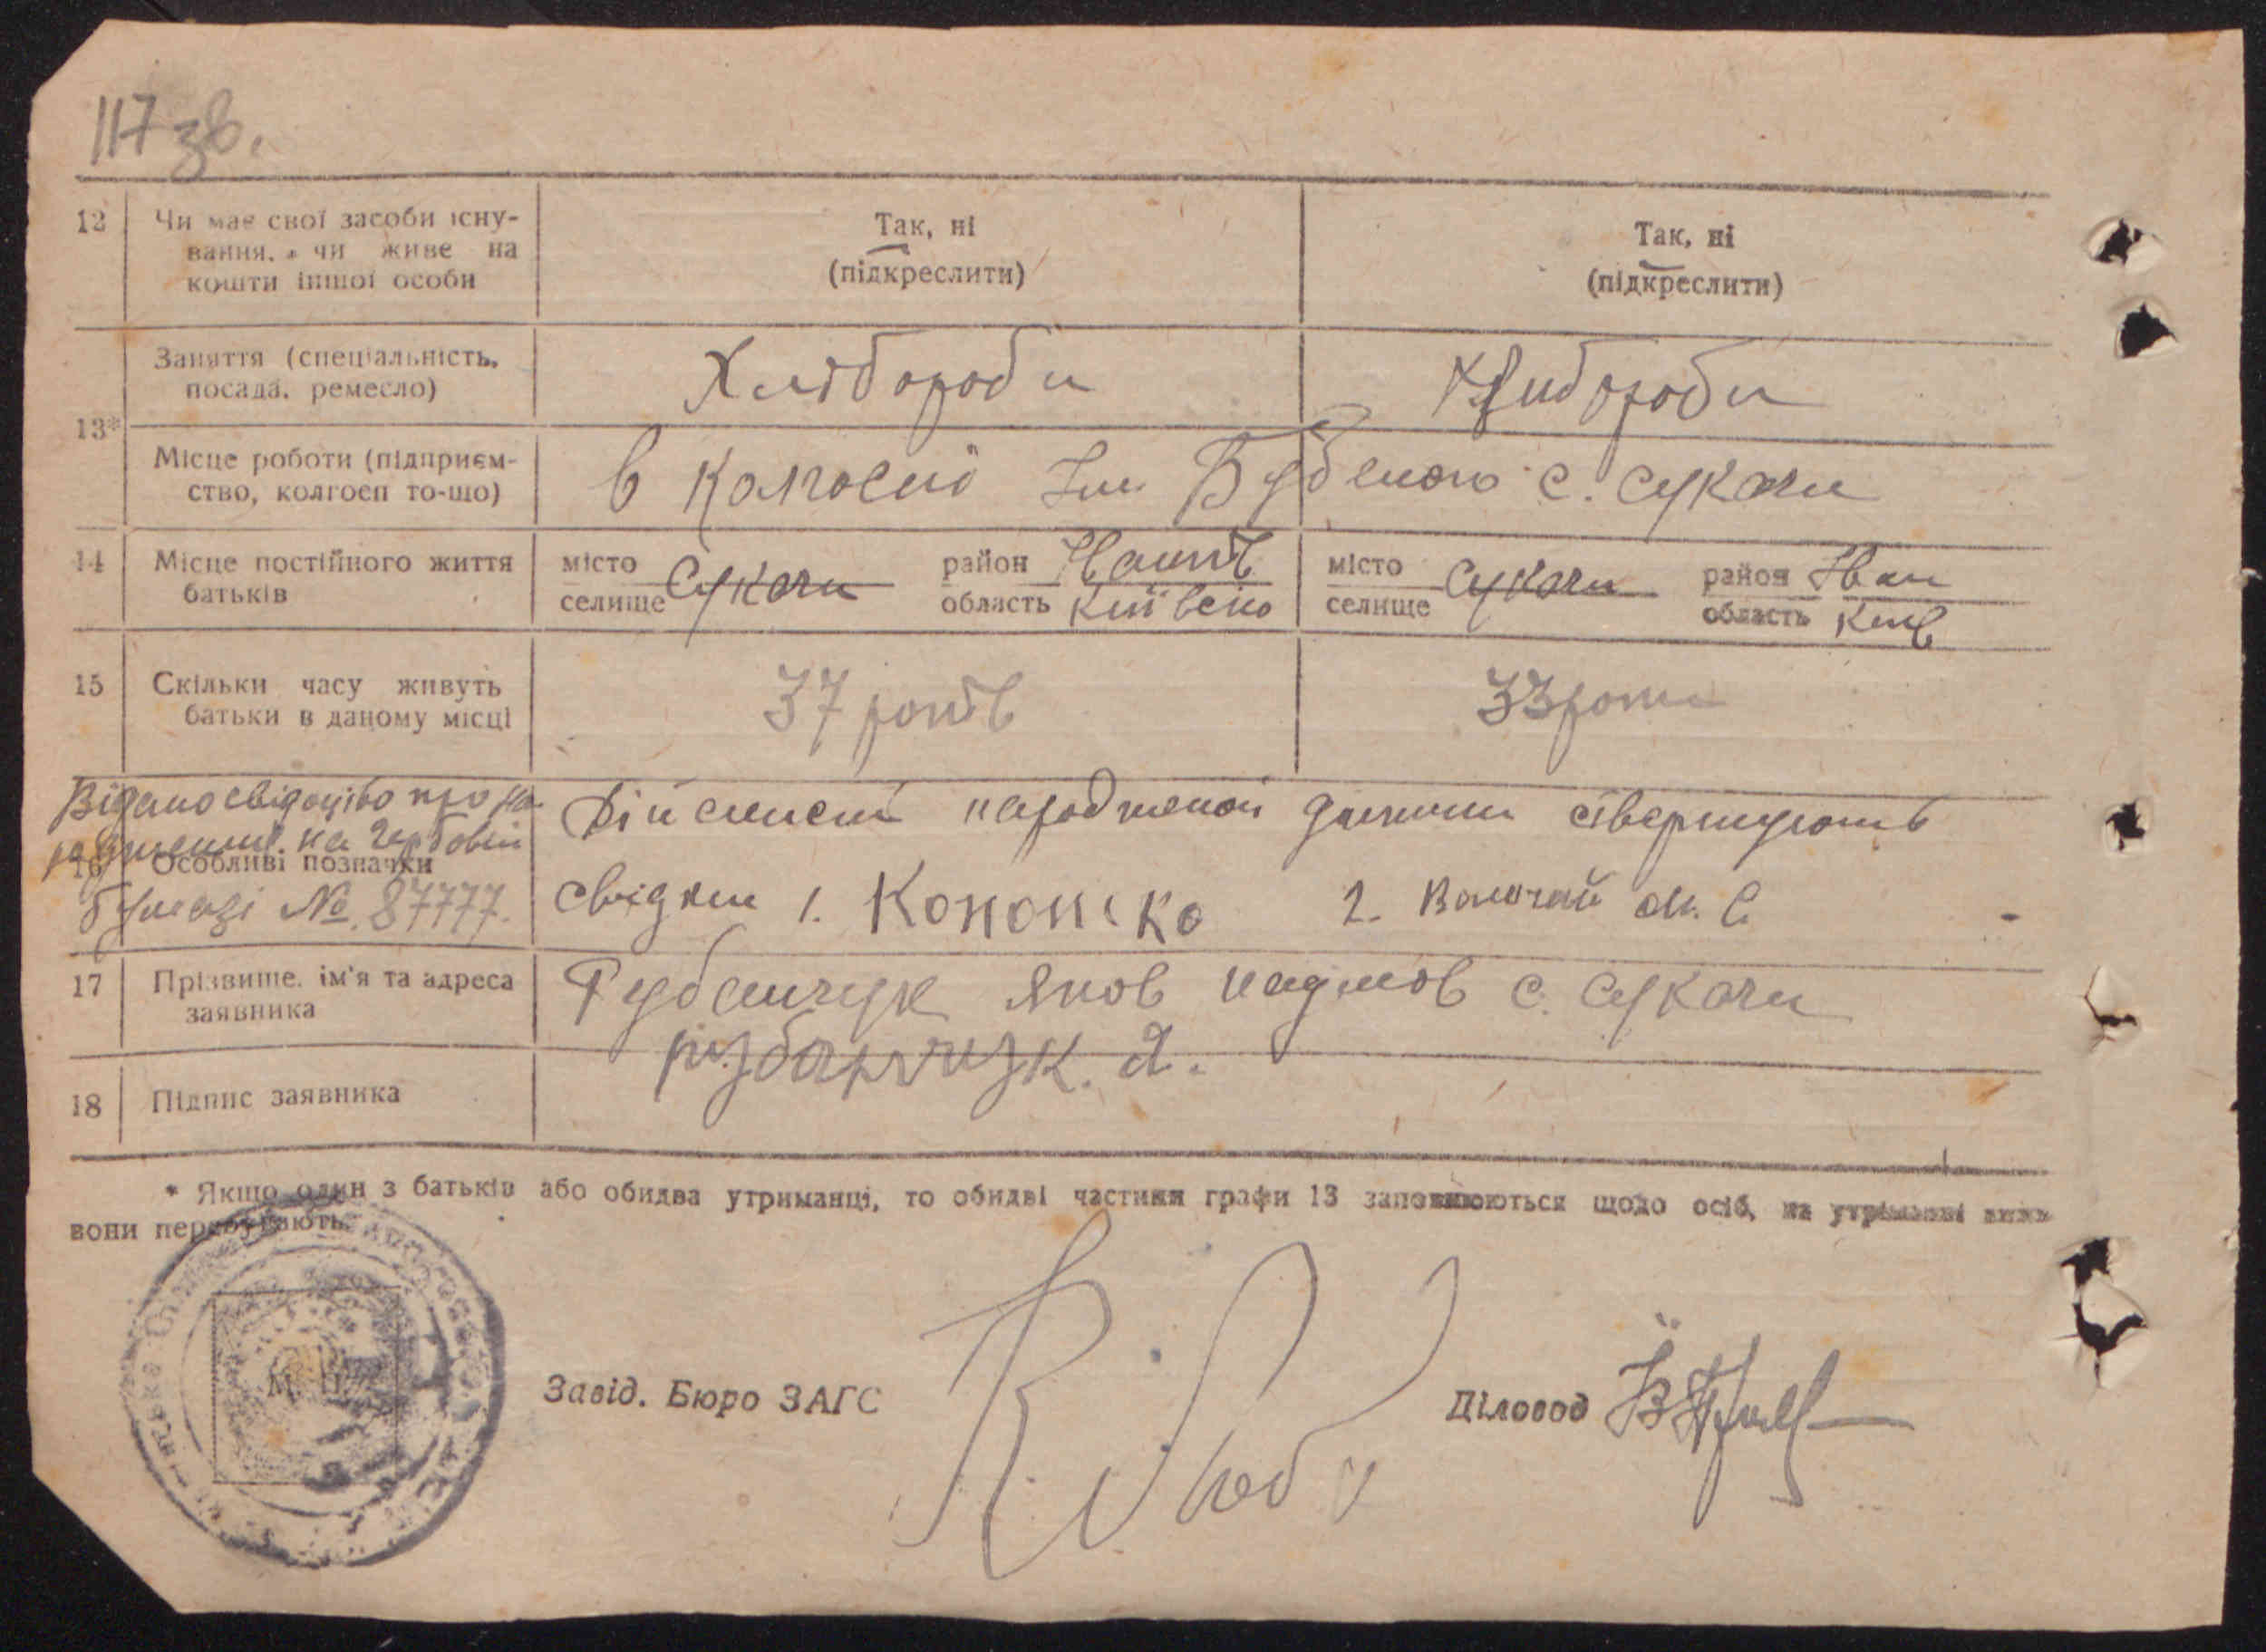 117 зв.
12 Чи має свої засоби існування, чи живе на кошти іншої особи
Так, ні (підкреслити)
Так, ні (підкреслити)
13*
Заняття (спеціальність, посада, ремесло)
Хлібороби
Хлібороби
Місце роботи (підприємство, колгосп то-що)
в колгоспі Ім Буденого с. Сукачи
14 Місце постійного життя батьків
місто селище Сукачи район область Київско
місто селище Сукачи район Іван область Київ
15 Скільки часу живуть батьки в даному місці
37 років
33 роки
Відано свідоцтво про на
на гербовій
бумазі № 87777.
16 Особливі позначки
народженої дитини ствержують
свідки 1. Кононко 2. м. С.
17 Прізвище, ім'я та адреса заявника
Рубанчук Яков с. Сукачи
18 Підпис заявника
рузбанчузк. Я.
* Якщо один з батьків або обидва утриманці, то обидві частини графи 13 заповнюються щодо осіб, на утриманні яких
вони перебувають.
М П
Завід. Бюро ЗАГС
Діловод